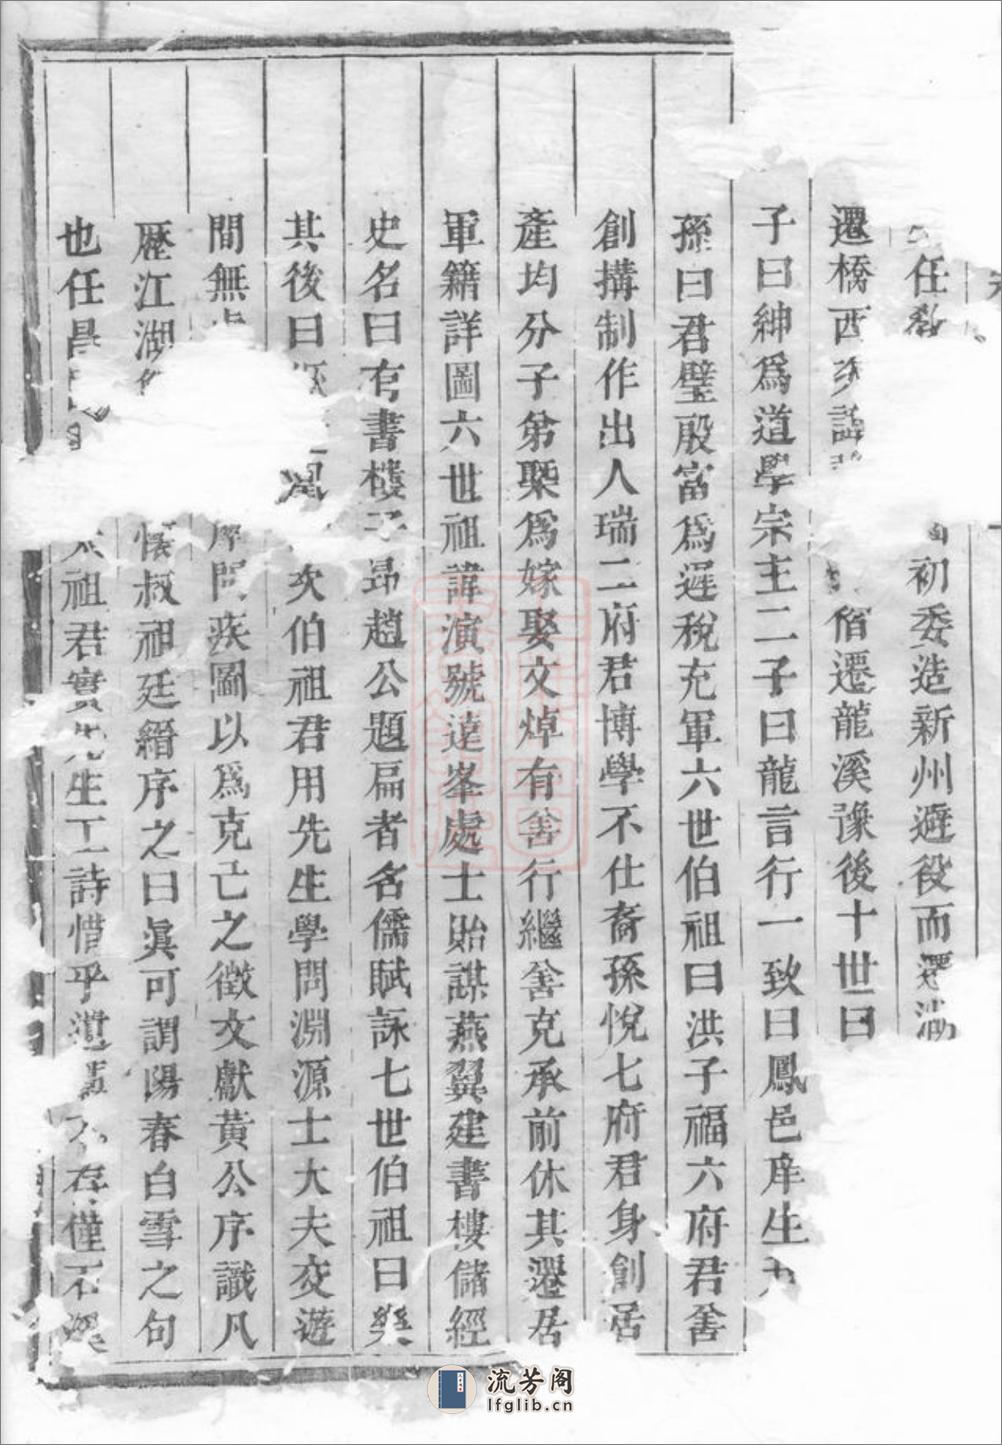 任
初委造新州避役而遷
遷橋西
遷龍溪豫後十世曰
子曰紳為道學宗主二子曰龍言行一致曰鳳邑庠生
孫曰君璧殷富為遲稅充軍六世伯祖曰洪子福六府君舍
創搆制作出人瑞二府君博學不仕裔孫悅七府君身創居
產均分子弟槩為嫁娶文焯有舍行繼舍克承前休其遷居
軍籍詳圖六世祖諱演號達峯處士貽謀燕翼建書樓儲經
史名曰有書樓子昂趙公題扁者名儒賦詠七世伯祖曰
其後曰
次伯祖君用先生學問淵源士大夫交遊
間無
問疾圖以為克己之徵文獻黃公序識凡
歷江湖
懷叔祖廷縉序之曰眞可謂陽春白雪之句
也任昌
祖君實先生工詩惜乎遺
存僅石溪
流芳阁
lfglib.cn